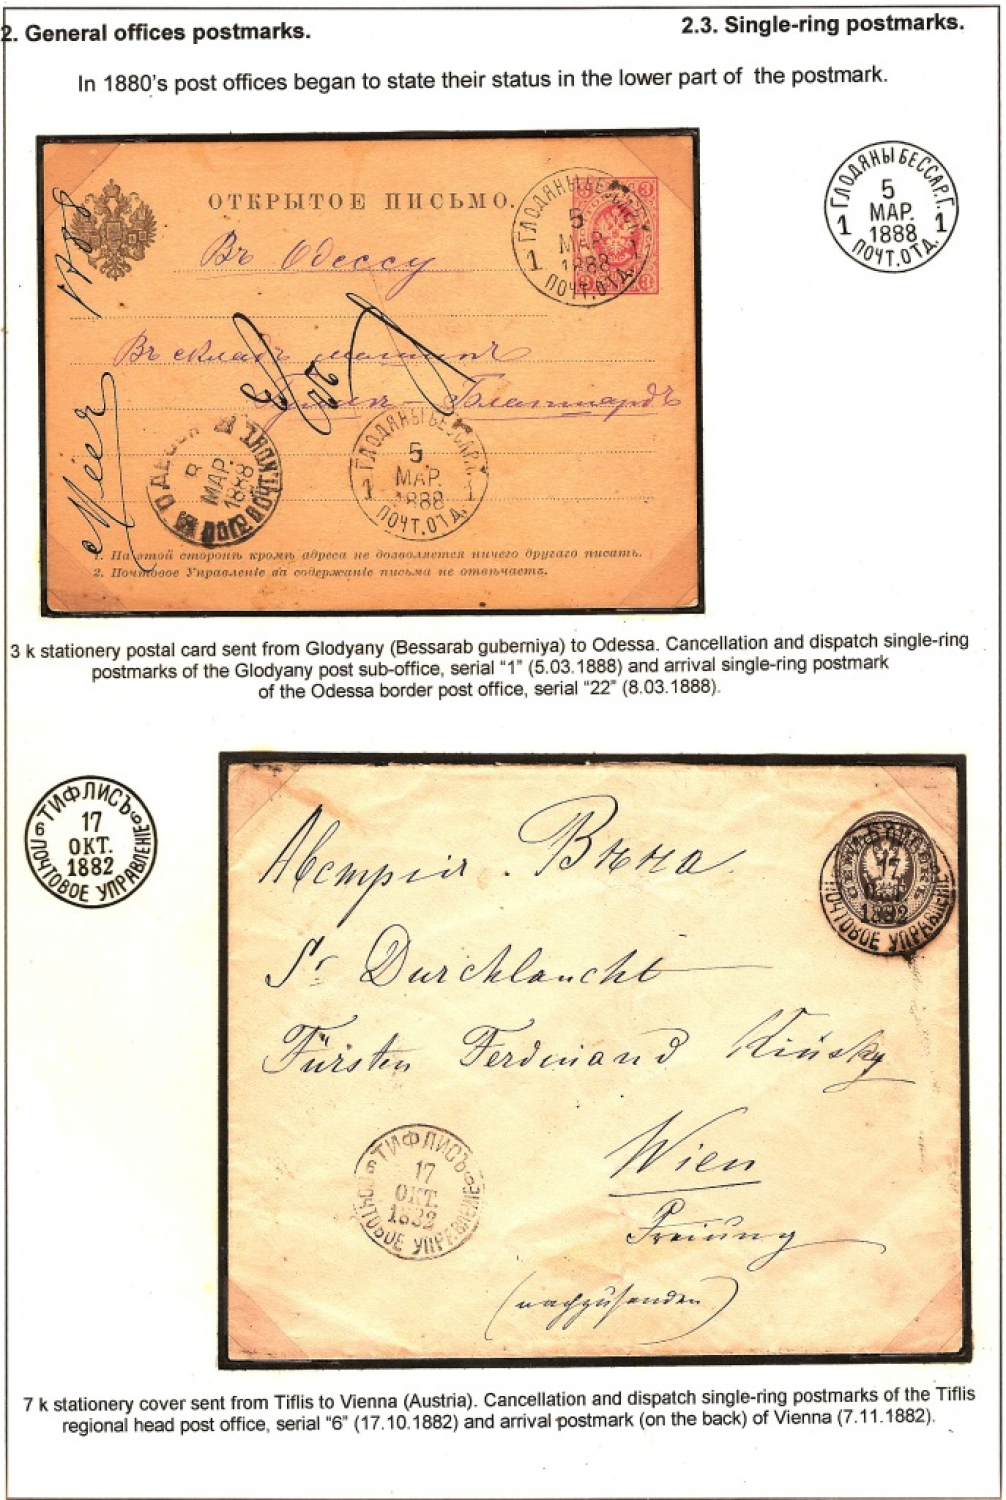 2. General offices postmarks.
2.3. Single-ring postmarks.
In 1880's post offices began to state their status in the lower part of the postmark.
ГЛОДЯНЫ БЕССАР.Г.
5
МАР.
1888
1 1
ПОЧТ.ОТД.
ОТКРЫТОЕ ПИСЬМО.
3
ГЛОДЯНЫ БЕССАР.Г.
5
МАР.
1888
1 1
ПОЧТ.ОТД.
Въ Одессу
Въ складъ машинъ
Бланшардъ
ГЛОДЯНЫ БЕССАР.Г.
5
МАР.
1888
1 1
ПОЧТ.ОТД.
ОДЕССА
8
МАР.
1888
1. На этой сторонѣ кромѣ адреса не дозволяется ничего другаго писать.
2. Почтовое Управленіе за содержаніе письма не отвѣчаетъ.
3 k stationery postal card sent from Glodyany (Bessarab guberniya) to Odessa. Cancellation and dispatch single-ring
postmarks of the Glodyany post sub-office, serial "1" (5.03.1888) and arrival single-ring postmark
of the Odessa border post office, serial "22" (8.03.1888).
ТИФЛИСЪ
17
ОКТ.
1882
6 6
ПОЧТОВОЕ УПРАВЛЕНІЕ
ТИФЛИСЪ
17
ОКТ.
1882
ПОЧТОВОЕ УПРАВЛЕНІЕ
Австрія. Вѣна.
Sr Durchlaucht
Fürsten Ferdinand Kinsky
Wien
Freiung
(nachzusenden)
ТИФЛИСЪ
17
ОКТ.
1882
6 6
ПОЧТОВОЕ УПРАВЛЕНІЕ
7 k stationery cover sent from Tiflis to Vienna (Austria). Cancellation and dispatch single-ring postmarks of the Tiflis
regional head post office, serial "6" (17.10.1882) and arrival postmark (on the back) of Vienna (7.11.1882).